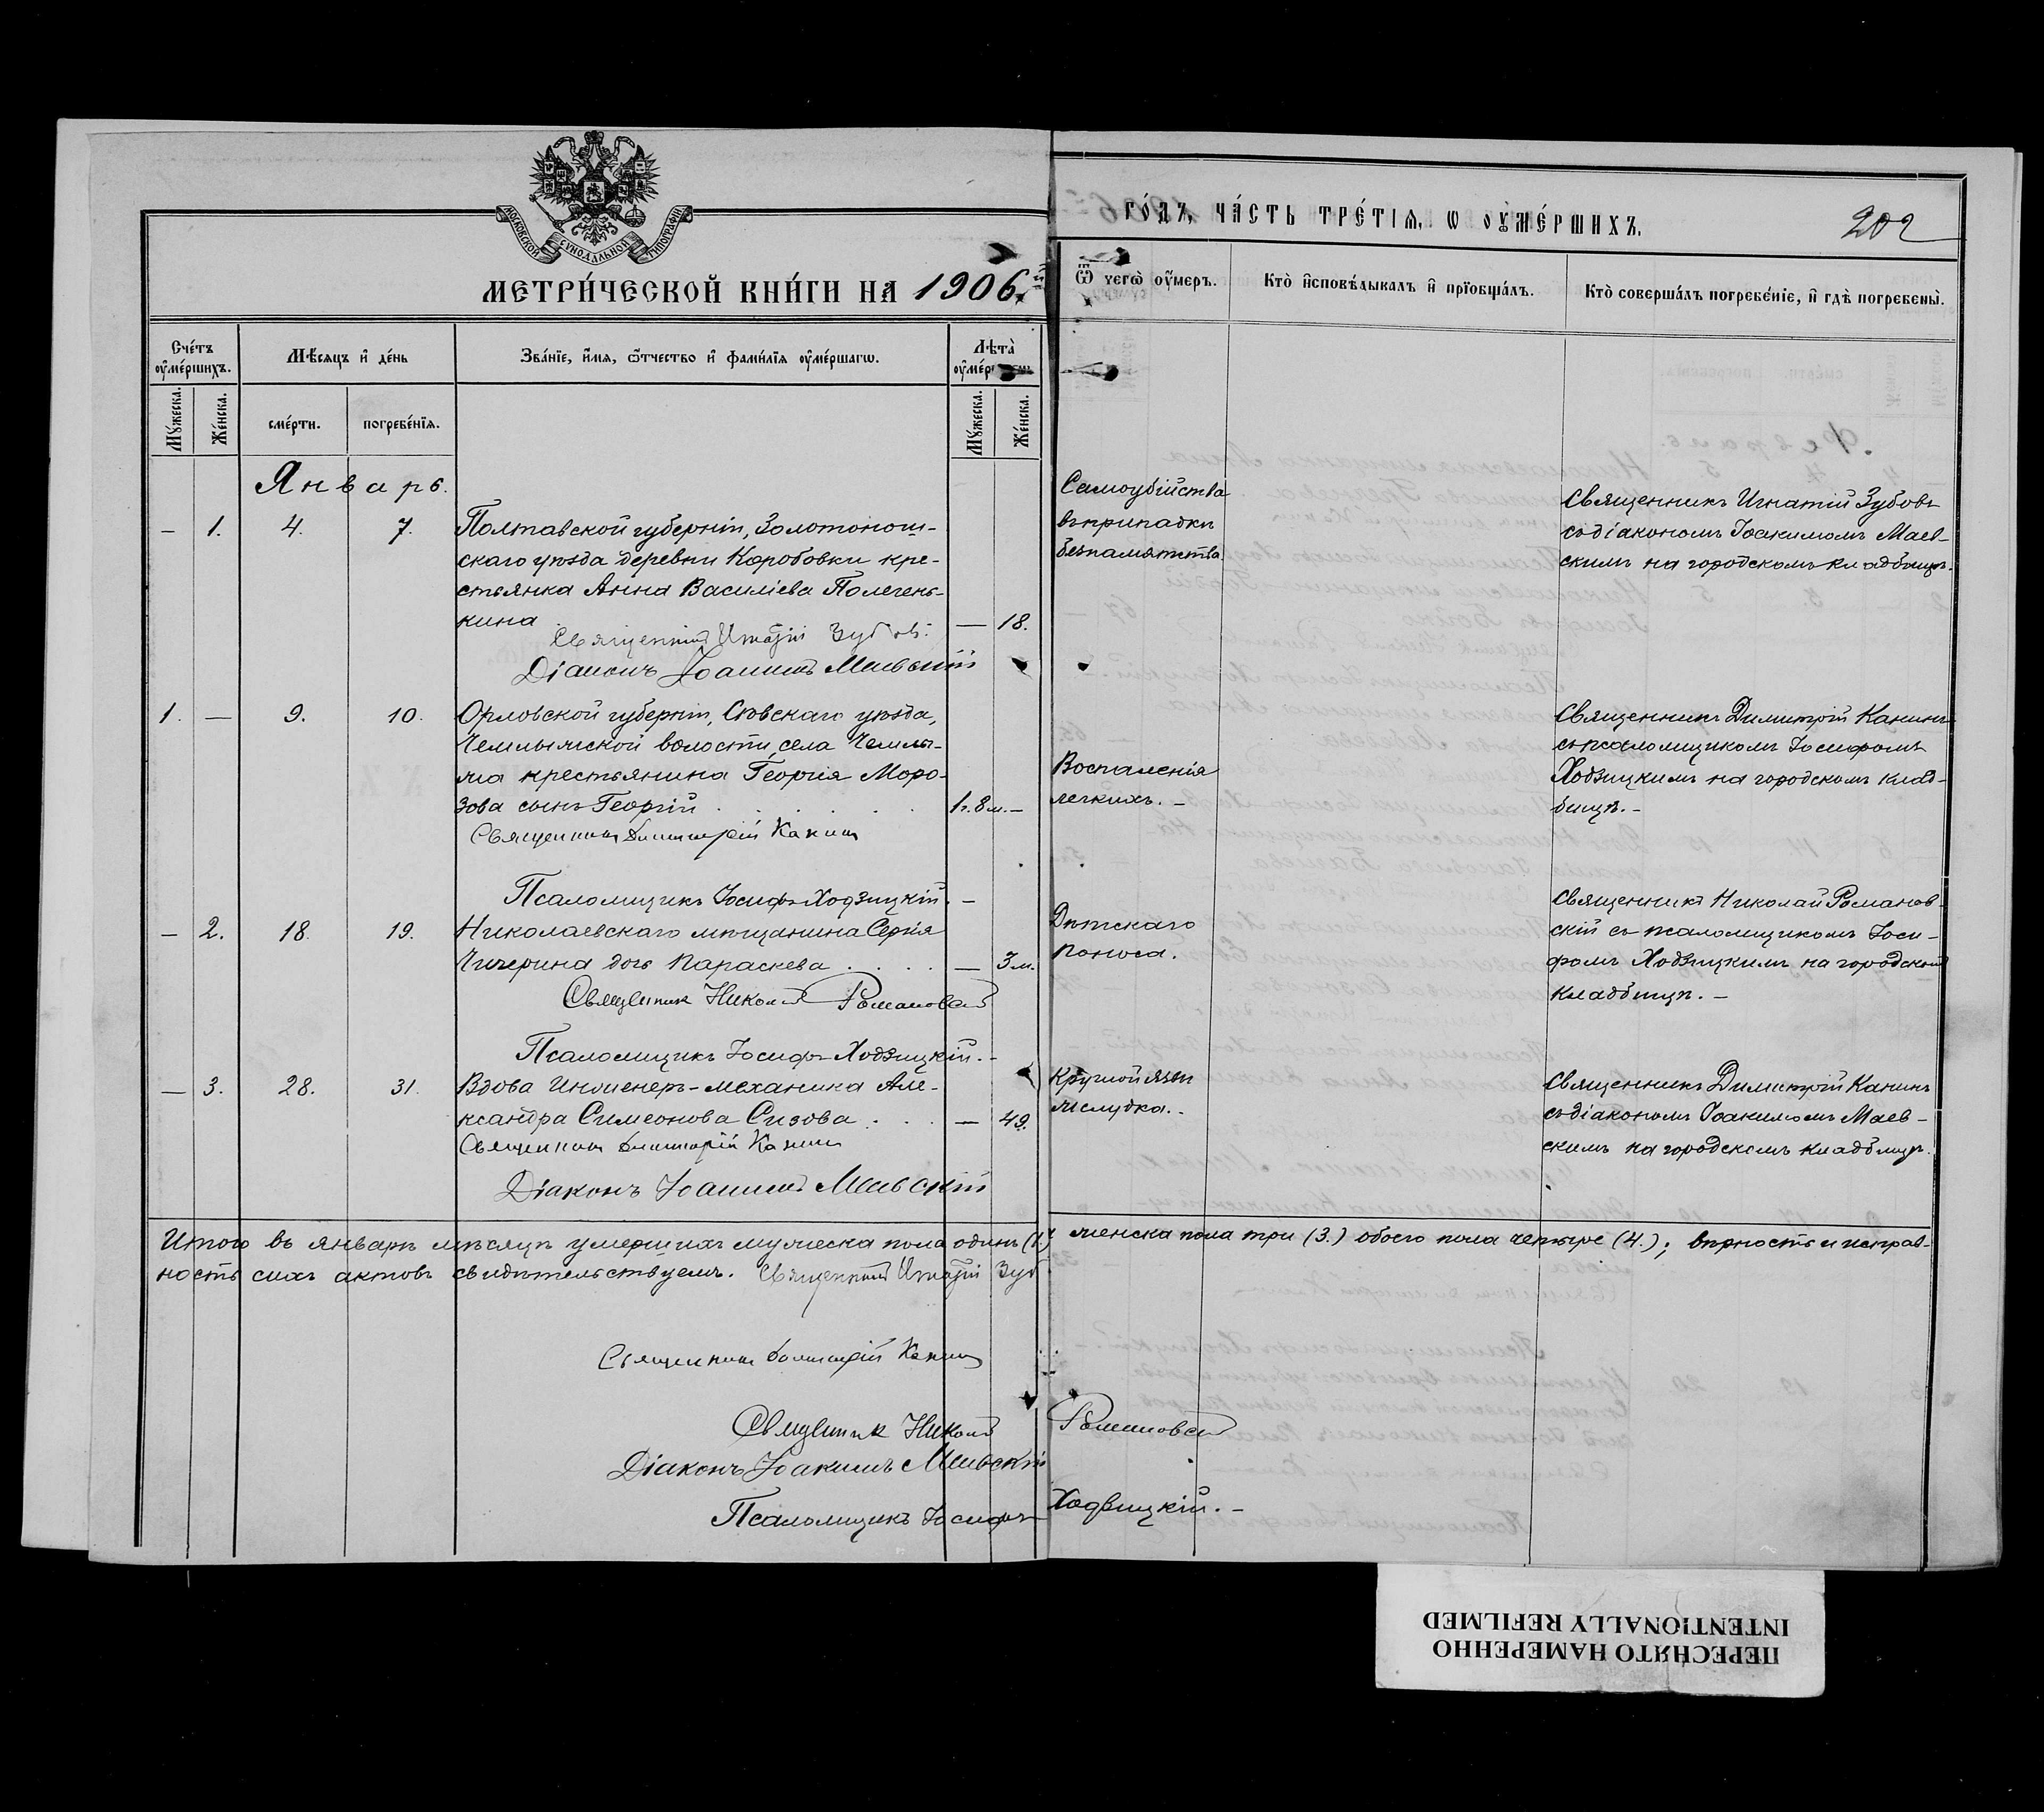 МОСКОВСКОЙ СѴНОДАЛЬНОЙ ТИПОГРАФІИ
МЕТРИ́ЧЕСКОЙ КНИ́ГИ НА 1906й
ГО́ДЪ, ЧА́СТЬ ТРЕ́ТІѦ, Ѡ ОУ҆МЕ́РШИХЪ.
202
Сче́тъ оу҆ме́ршихъ.
Мѣ́сяцъ и҆ де́нь
Зва́нїе, и҆́мя, ѻ҆́тчество и҆ фами́лїя оу҆ме́ршагѡ.
Лѣта̀ оу҆ме́р
Ѿ чегѡ̀ оу҆́меръ.
Кто̀ и҆сповѣ́дывалъ и҆ прїобща́лъ.
Кто̀ соверша́лъ погребе́нїе, и҆ гдѣ̀ погребены̀.
Му́жеска.
Же́нска.
сме́рти.
погребе́нїя.
Му́жеска.
Же́нска.
Январь.
— 1. 4. 7.
Полтавской губерніи, Золотонош-
скаго уѣзда деревни Коробовки кре-
стьянка Анна Василіева Полегень-
кина — 18.
Священникъ Игнатій Зубовъ.
Діаконъ Іоакимъ Маевскій
Самоубійства
въ припадкѣ
безпамятства
Священникъ Игнатій Зубовъ
съ діакономъ Іоакимомъ Маев-
скимъ на городскомъ кладбищѣ.
1. — 9. 10.
Орловской губерніи, Сѣвскаго уѣзда,
Чемлыжской волости, села Чемлы-
жа крестьянина Георгія Моро-
зова сынъ Георгій . . . . . 1г. 8м. —
Священникъ Димитрій Канинъ
Псаломщикъ Іосифъ Ходзицкій. —
Воспаленія
легкихъ. —
Священникъ Димитрій Канинъ
съ псаломщикомъ Іосифомъ
Ходзицкимъ на городскомъ клад-
бищѣ. —
— 2. 18. 19.
Николаевскаго мѣщанина Сергія
Чичерина дочь Параскева . . . . — 3м.
Священник Николай Романовскій
Псаломщикъ Іосифъ Ходзицкій. —
Дѣтскаго
поноса.
Священникъ Николай Романов-
скій съ псаломщикомъ Іоси-
фомъ Ходзицкимъ на городскомъ
кладбищѣ. —
— 3. 28. 31.
Вдова Инженеръ-механика Але-
ксандра Симеонова Сизова . . . — 49.
Священникъ Димитрій Канинъ
Діаконъ Іоакимъ Маевскій
Круглой язвы
желудка. -
Священникъ Димитрій Канинъ
съ діакономъ Іоакимомъ Маев-
скимъ на городскомъ кладбищѣ.
Итого въ январѣ мѣсяцѣ умершихъ мужеска пола одинъ (1.) женска пола три (3.) обоего пола четыре (4.); вѣрность и исправ-
ность сихъ актовъ свидѣтельствуемъ. Священникъ Игнатій Зуб
Священникъ Димитрій Канинъ
Священник Николай Романовскій
Діаконъ Іоакимъ Маевскій
Псаломщикъ Іосифъ Ходзицкій. —
ПЕРЕСНЯТО НАМЕРЕННО
INTENTIONALLY REFILMED